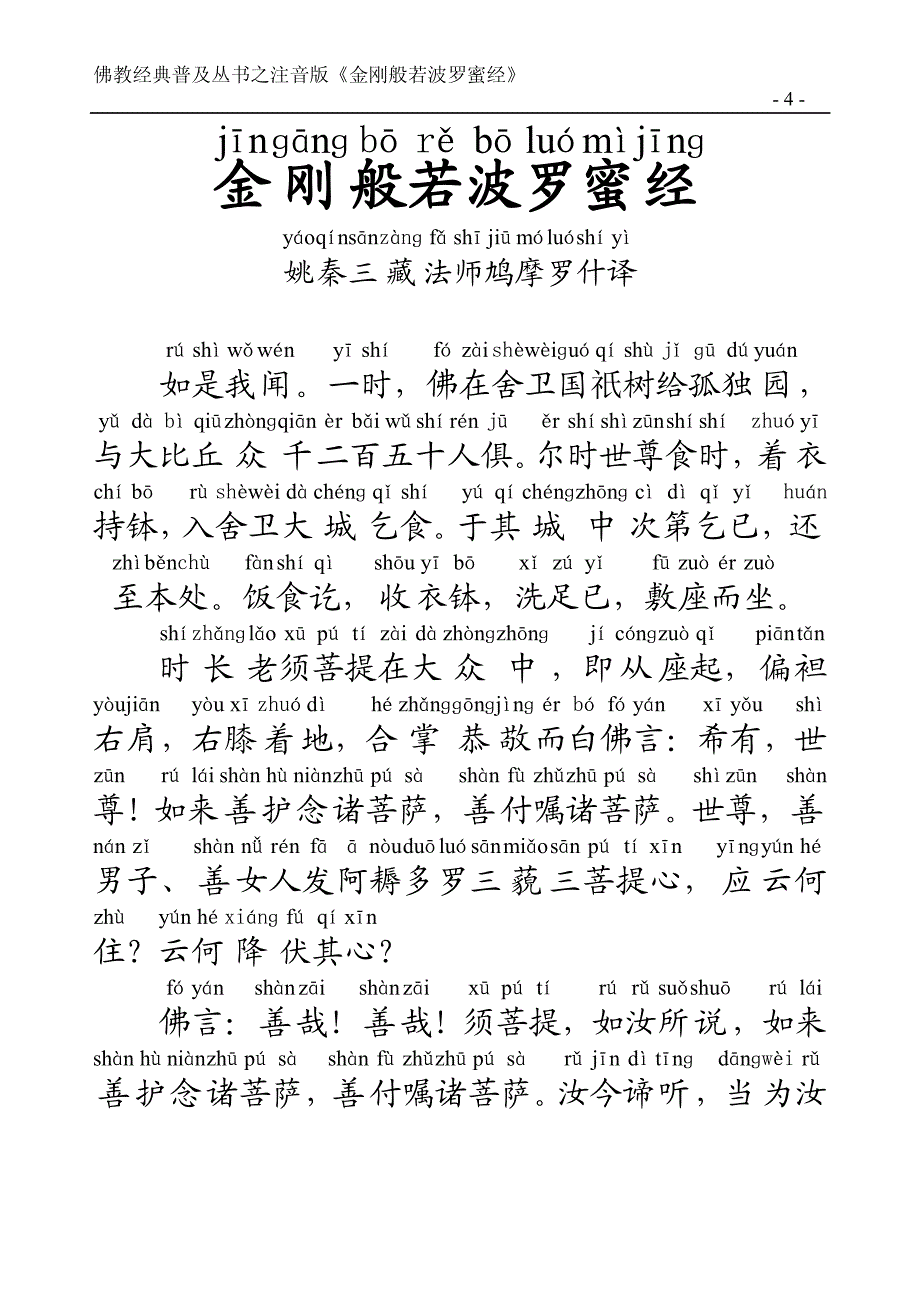 佛教经典普及丛书之注音版《金刚般若波罗蜜经》
- 4 -
jīngāng bō rě bō luó mì jīng
金刚般若波罗蜜经
yáoqínsānzàng fǎ shī jiū mó luóshí yì
姚秦三藏法师鸠摩罗什译
rú shì wǒ wén yī shí fó zài shèwèiguó qí shù jǐ gū dú yuán
如是我闻。一时，佛在舍卫国祇树给孤独园，
yǔ dà bì qiūzhòngqiān èr bǎi wǔ shí rén jū ěr shí shì zūnshí shí zhuó yī
与大比丘众千二百五十人俱。尔时世尊食时，着衣
chí bō rù shèwèi dà chéng qǐ shí yú qí chéngzhōng cì dì qǐ yǐ huán
持钵，入舍卫大城乞食。于其城中次第乞已，还
zhì běnchù fàn shí qì shōu yī bō xǐ zú yǐ fū zuò ér zuò
至本处。饭食讫，收衣钵，洗足已，敷座而坐。
shí zhǎnglǎo xū pú tí zài dà zhòngzhōng jí cóngzuò qǐ piāntǎn
时长老须菩提在大众中，即从座起，偏袒
yòujiān yòu xī zhuó dì hé zhǎnggōngjìng ér bó fó yán xī yǒu shì
右肩，右膝着地，合掌恭敬而白佛言：希有，世
zūn rú lái shàn hù niànzhū pú sà shàn fù zhǔzhū pú sà shì zūn shàn
尊！如来善护念诸菩萨，善付嘱诸菩萨。世尊，善
nán zǐ shàn nǚ rén fā ā nòuduō luó sānmiǎosān pú tí xīn yīngyún hé
男子、善女人发阿耨多罗三藐三菩提心，应云何
zhù yún hé xiáng fú qí xīn
住？云何降伏其心？
fó yán shànzāi shànzāi xū pú tí rú rǔ suǒshuō rú lái
佛言：善哉！善哉！须菩提，如汝所说，如来
shàn hù niànzhū pú sà shàn fù zhǔzhū pú sà rǔ jīn dì tīng dāngwèi rǔ
善护念诸菩萨，善付嘱诸菩萨。汝今谛听，当为汝